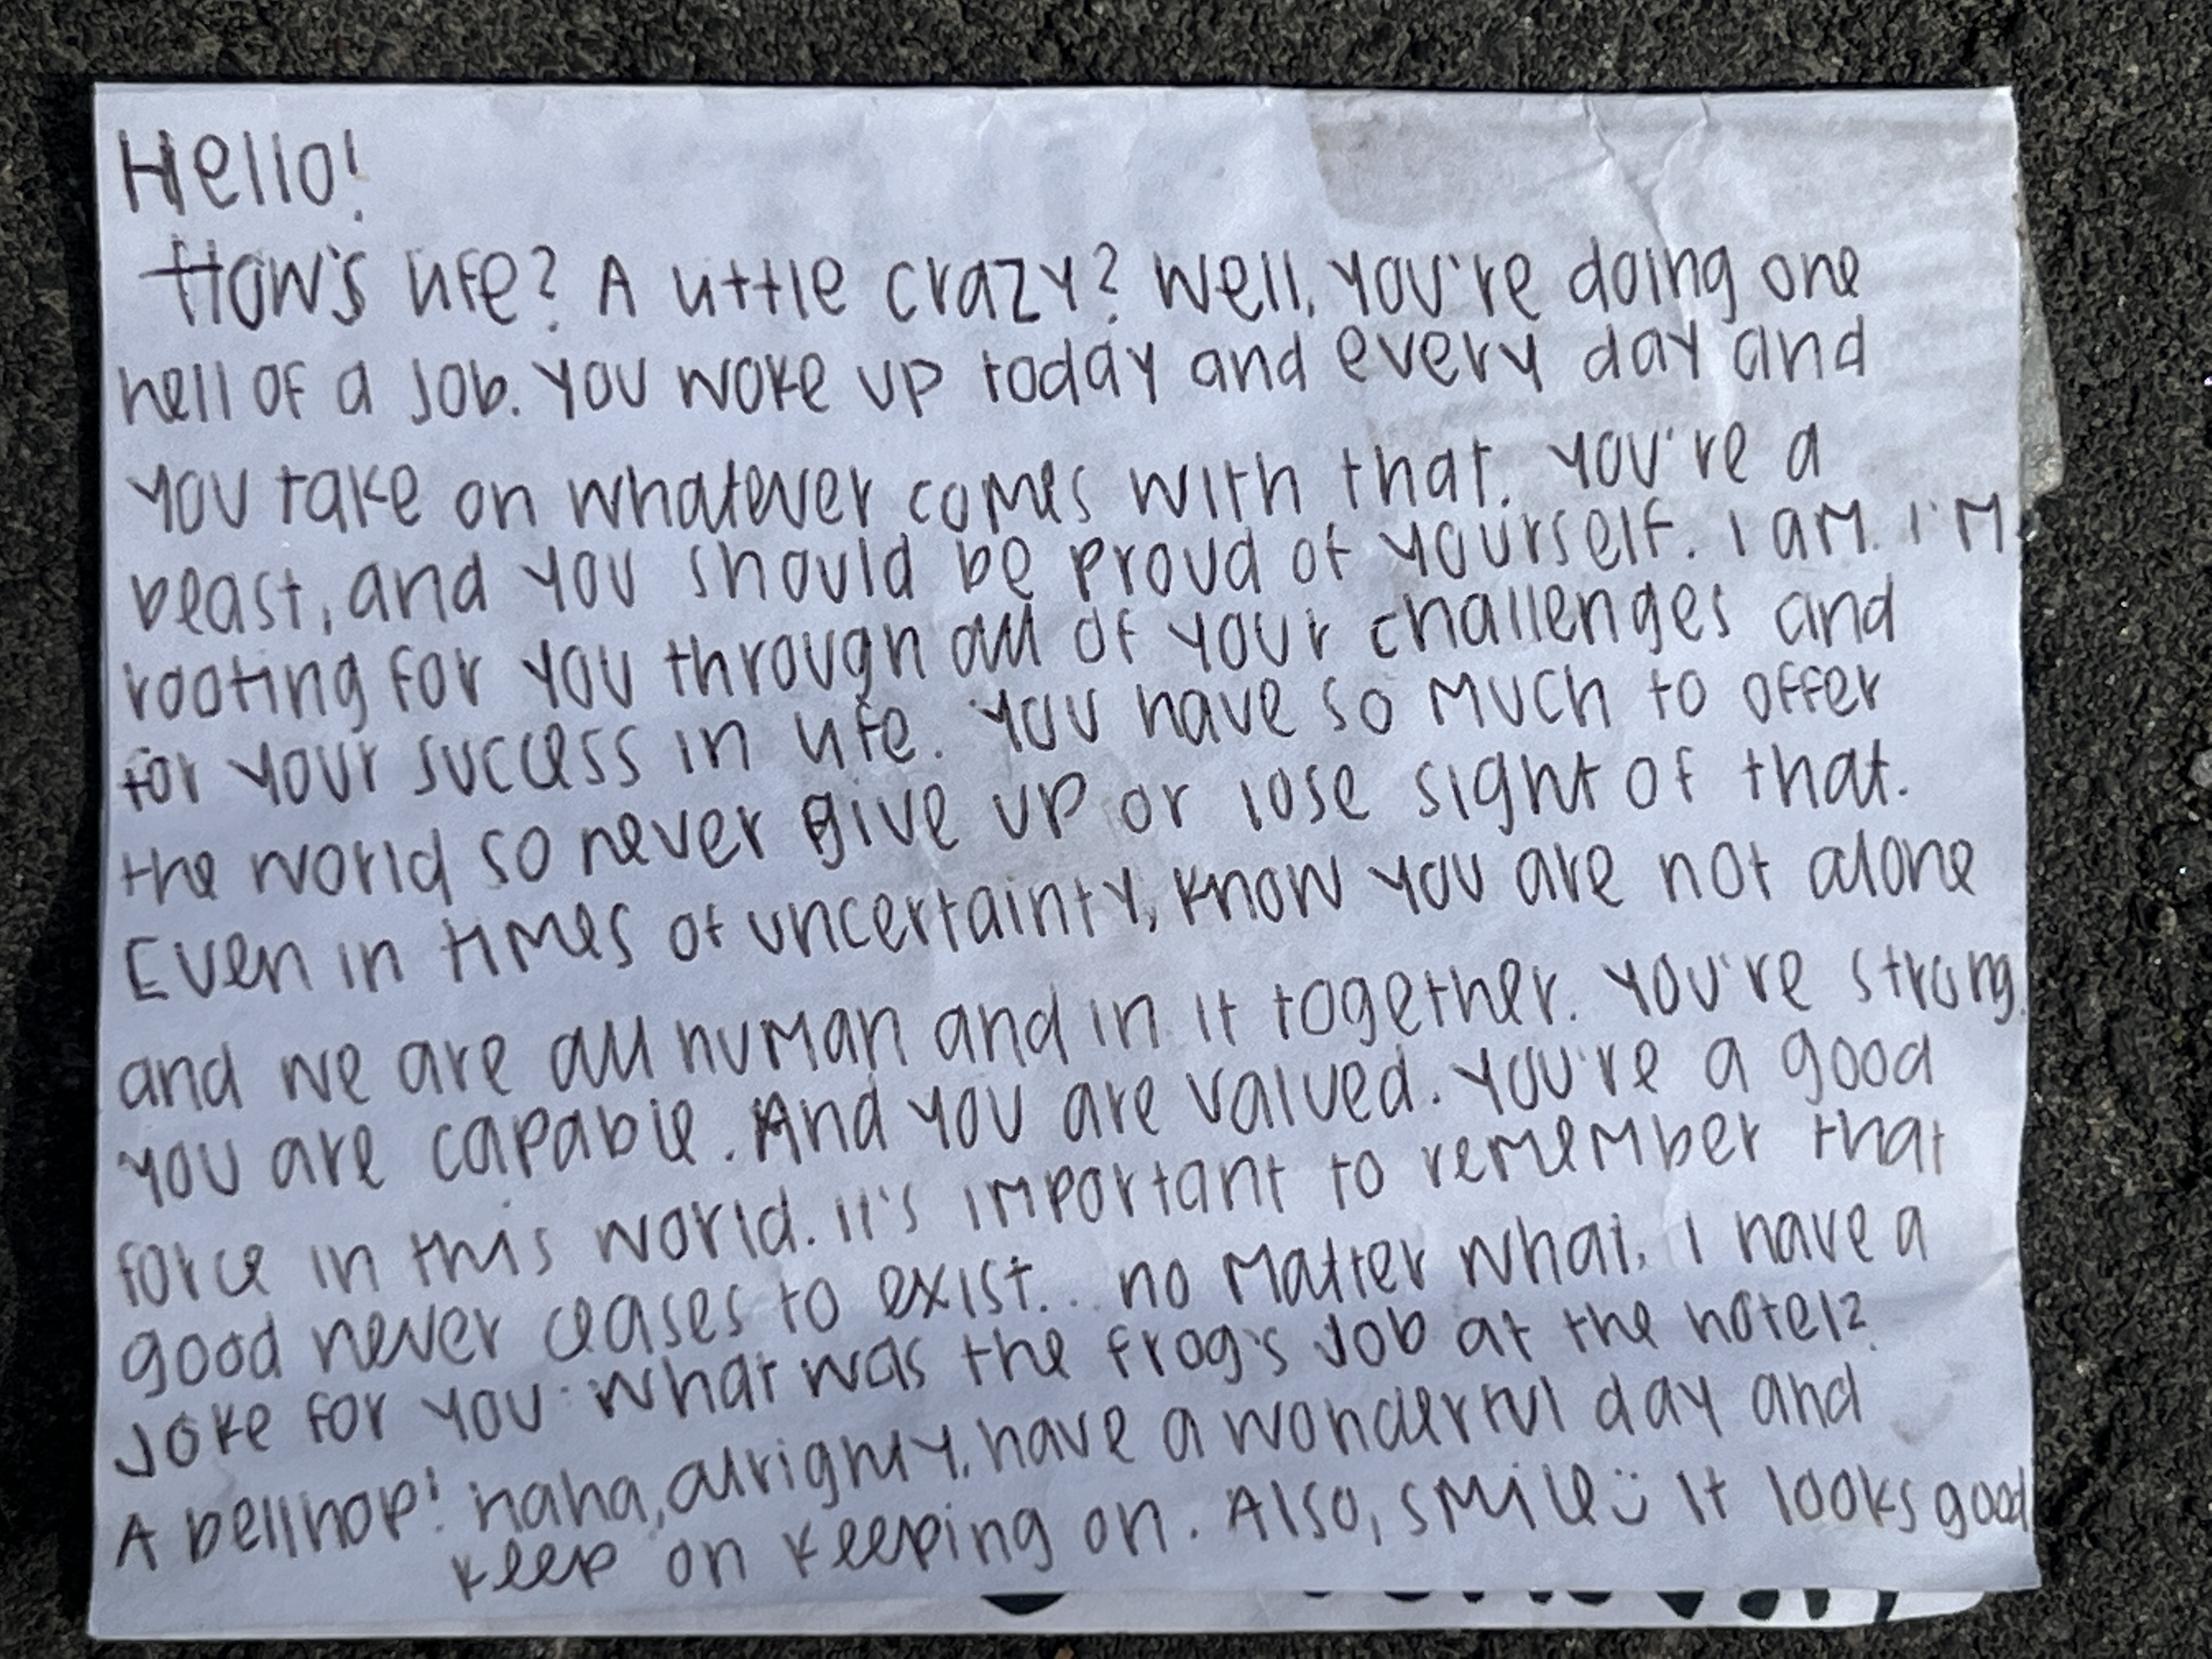 Hello!
How's life? A little crazy? Well, you're doing one
hell of a job. You woke up today and every day and
you take on whatever comes with that. You're a
beast, and you should be proud of yourself. I am. I'm
rooting for you through all of your challenges and
for your success in life. You have so much to offer
the world so never give up or lose sight of that.
Even in times of uncertainty, know you are not alone
and we are all human and in it together. You're strong.
you are capable. And you are valued. You're a good
force in this world. It's important to remember that
good never ceases to exist... no matter what. I have a
joke for you: What was the frog's job at the hotel?
A bellhop! haha, alrighty, have a wonderful day and
keep on keeping on. Also, smile :) It looks good